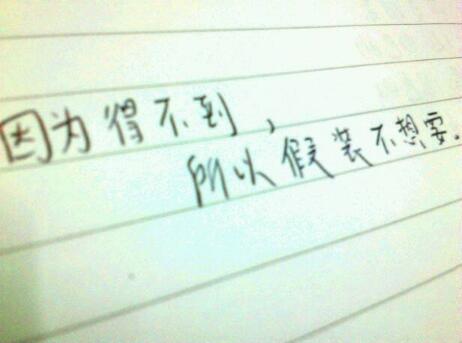 因为得不到，
所以假装不想要。